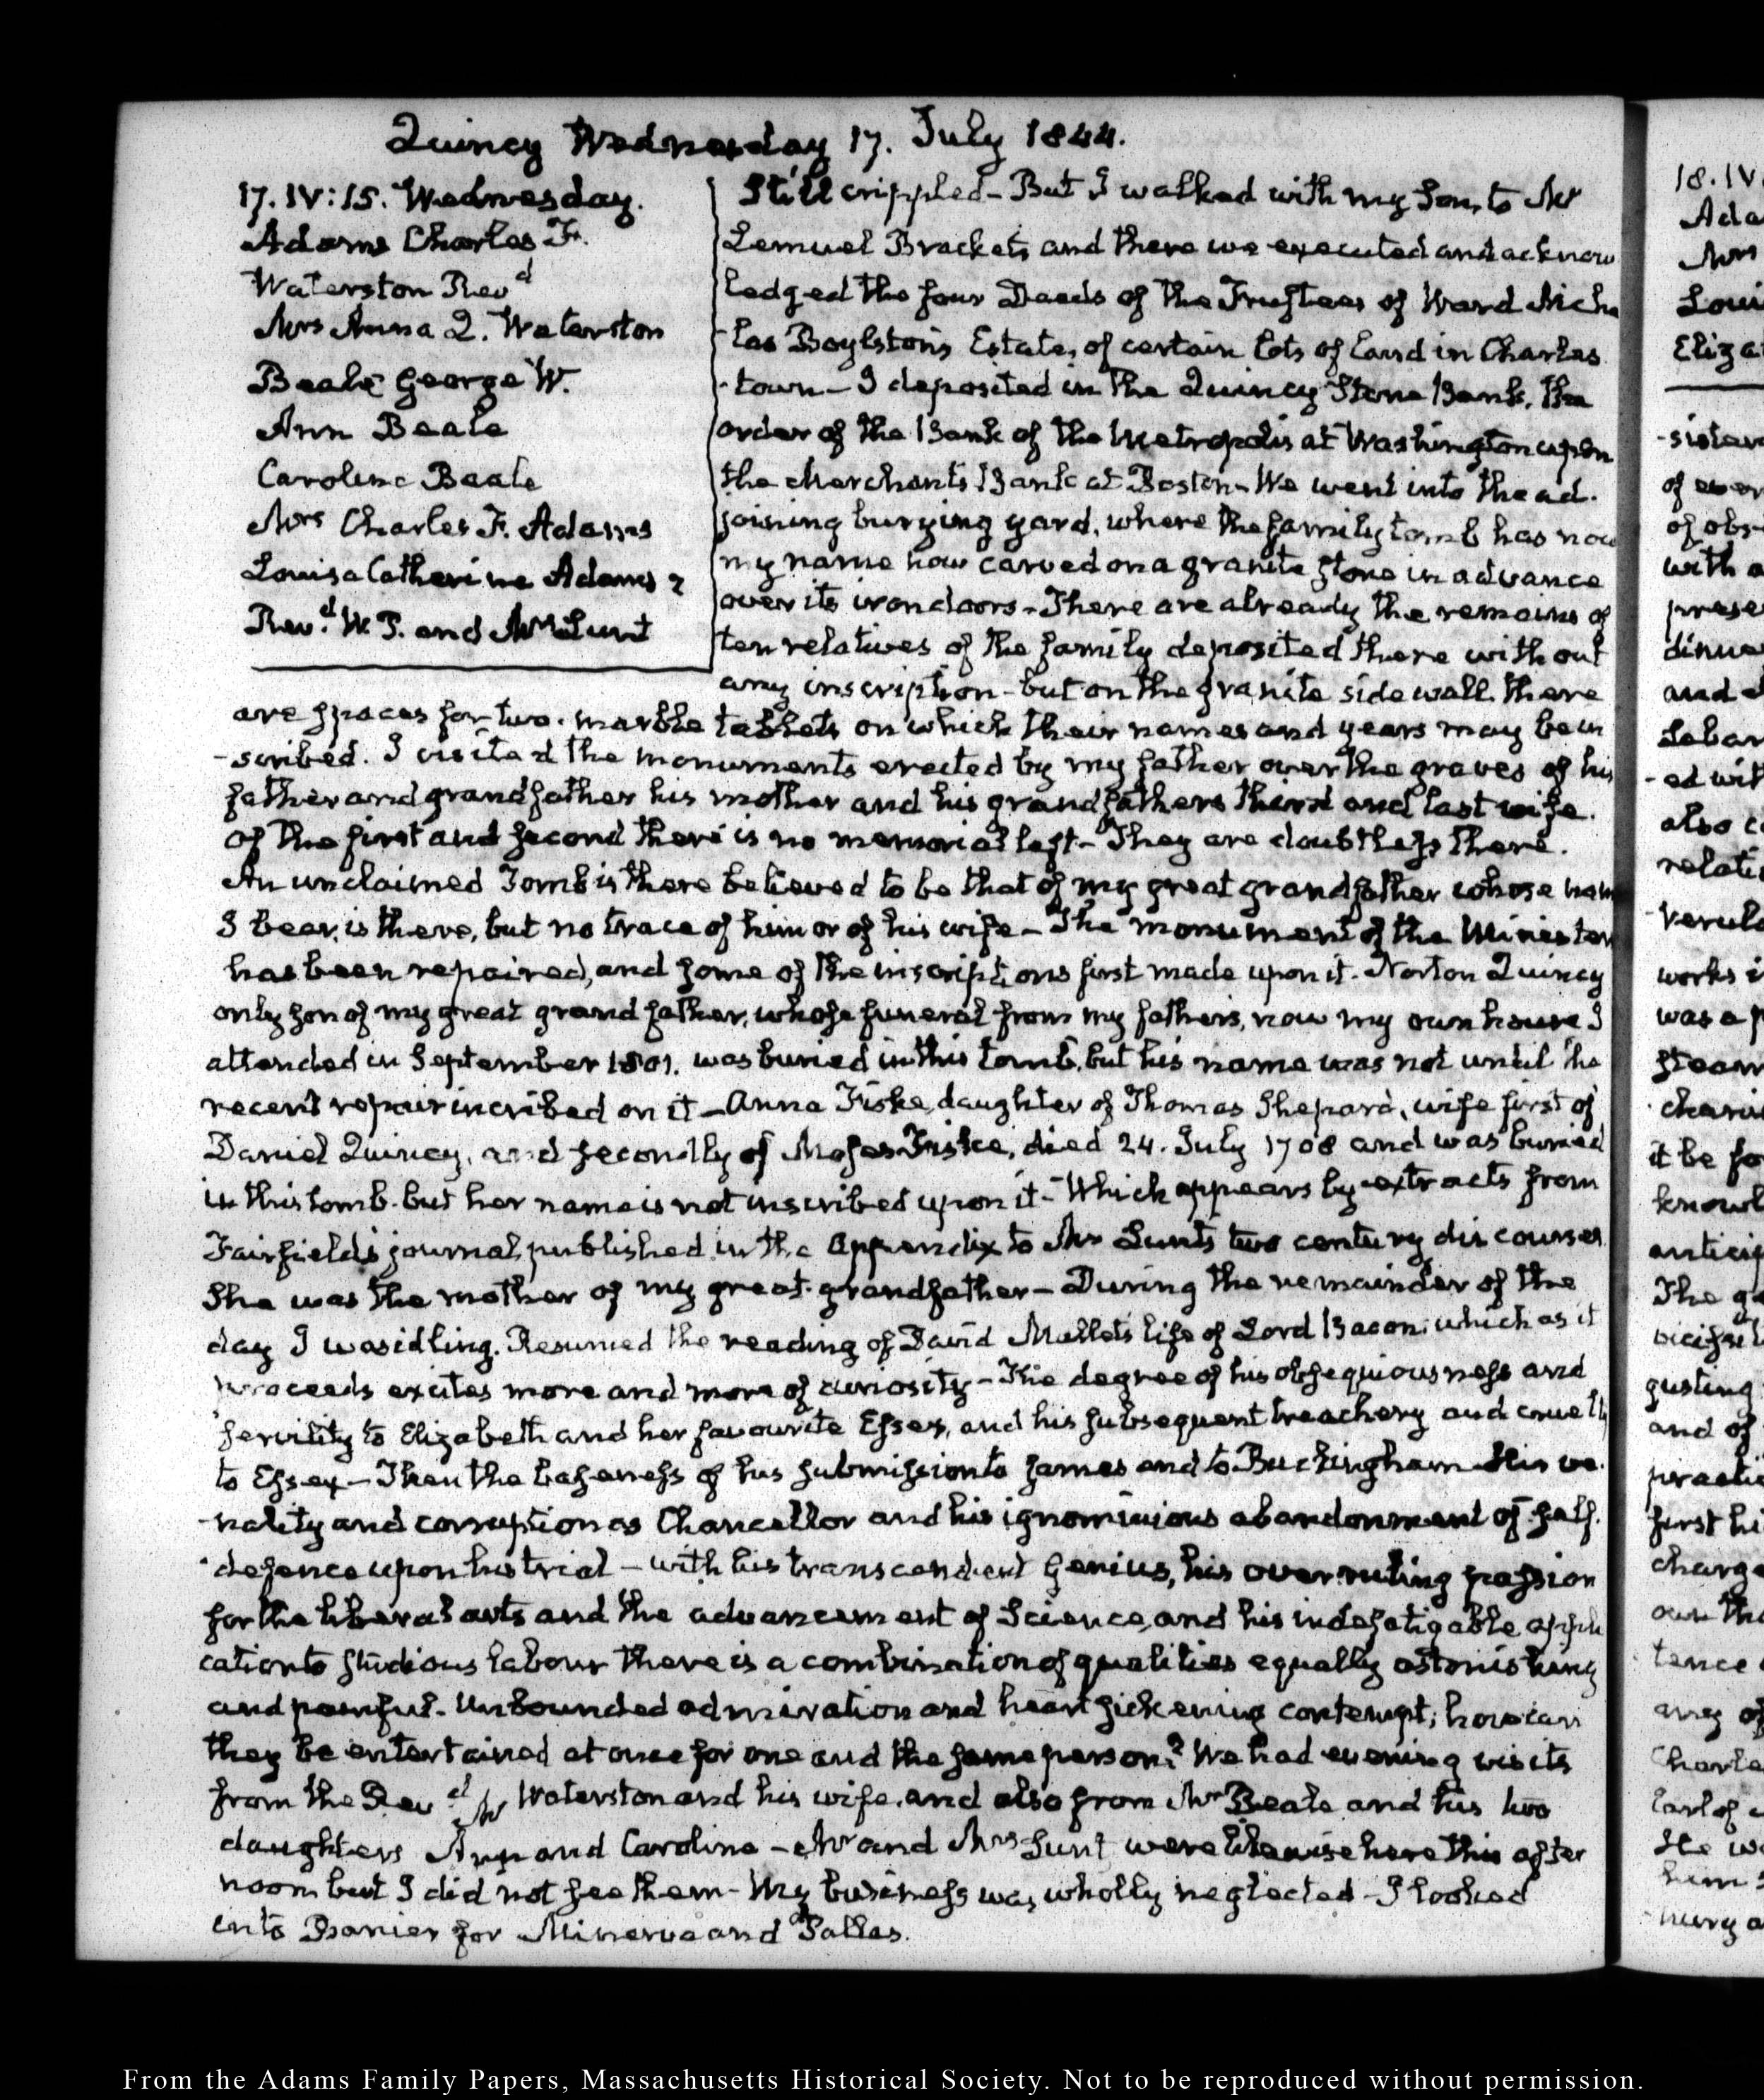 Quincy Wednesday 17. July 1844.
17. IV:15. Wednesday.
Adams Charles F.
Waterston Revd
Mrs Anna Q. Waterston
Beale George W.
Ann Beale
Caroline Beale
Mrs Charles F. Adams
Louisa Catherine Adams 2
Revd. W. P. and Mrs Lunt
Still crippled – But I walked with my Son, to Mr
Lemuel Brackets and there we executed and acknow
ledged the four Deeds of the Trustees of Ward Nicho
-las Boylston's Estate, of certain lots of land in Charles
-town – I deposited in the Quincy Stone Bank, the
order of the Bank of the Metropolis at Washington upon
the Merchants Bank at Boston – We went into the ad-
joining burying yard, where the family tomb has now
my name now carved on a granite stone in advance
over its iron doors – There are already the remains of
ten relatives of the family deposited there without
any inscription – but on the granite side wall there
are spaces for two marble tablets on which their names and years may be in
-scribed. I visited the monuments erected by my father over the graves of his
father and grandfather his mother and his grandfathers third and last wife.
of the first and second there is no memorial left – They are doubtless there.
An unclaimed Tomb is there believed to be that of my great grandfather whose name
I bear, is there, but no trace of him or of his wife – The monument of the Minister
has been repaired, and some of the inscriptions first made upon it. Norton Quincy
only son of my great grandfather, whose funeral from my fathers, now my own house I
attended in September 1801. was buried in this tomb, but his name was not until the
recent repair incribed on it – Anna Fiske, daughter of Thomas Shepard, wife first of
Daniel Quincy, and secondly of Moses Fiske, died 24. July 1708 and was buried
in this tomb. but her name is not inscribed upon it – Which appears by extracts from
Fairfield's journal, published in the Appendix to Mr Lunts two century discourses
She was the mother of my great-grandfather – During the remainder of the
day I was idling. Resumed the reading of David Mallets life of Lord Bacon: which as it
proceeds excites more and more of curiosity – The degree of his obsequiousness and
servility to Elizabeth and her favourite Essex, and his subsequent treachery and cruelty
to Essex – Then the baseness of his submission to James and to Buckingham His ve-
-nality and corruption as Chancellor and his ignominious abandonment of self-
-defence upon his trial – with his transcendent Genius, his overruling passion
for the liberal arts and the advancement of Science, and his indefatigable appli
cation to studious labour there is a combination of qualities equally astonishing
and painful. Unbounded admiration and heart sickening contempt; how can
they be entertained at once for one and the same person? We had evening visits
from the Revd. Mr Waterston and his wife, and also from Mr Beale and his two
daughters Ann and Caroline – Mr and Mrs Lunt were likewise here this after
noon but I did not see them – My business was wholly neglected – I looked
into Banier for Minerva and Pallas.
From the Adams Family Papers, Massachusetts Historical Society. Not to be reproduced without permission.